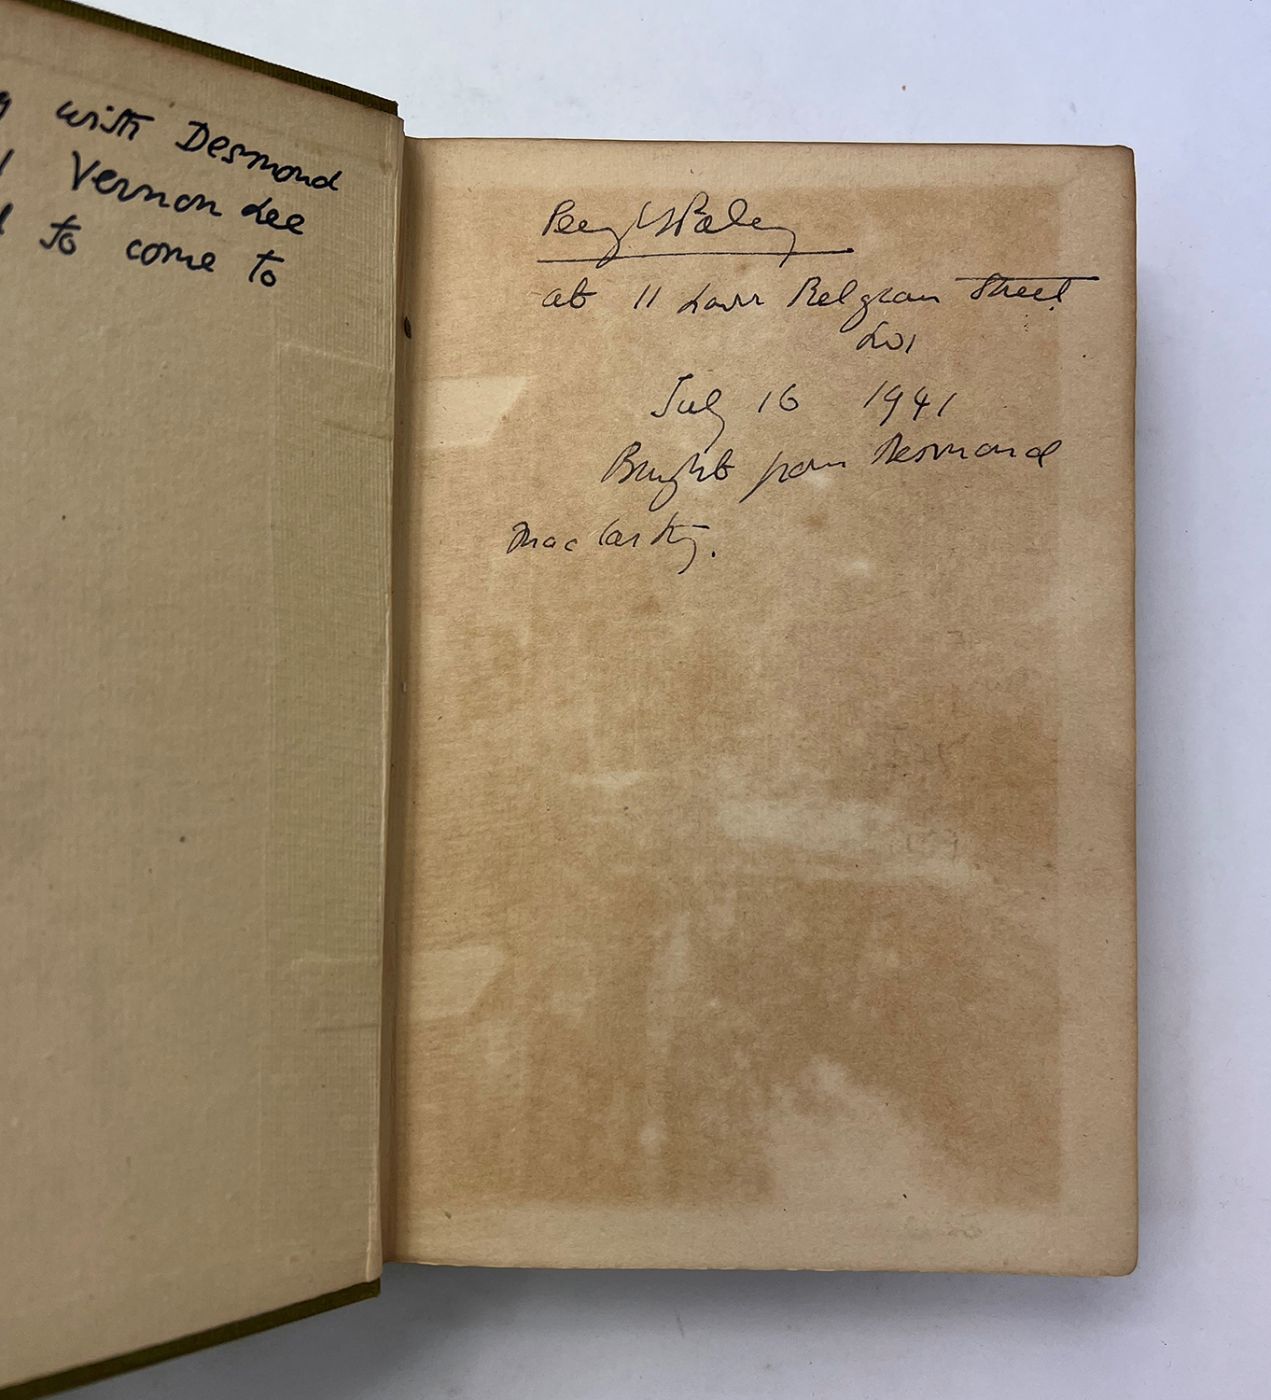 with Desmond
Vernon Lee
to come to
at 11 Lower Belgrave Street
SW1
July 16 1941
Bought from Desmond
MacCarthy.